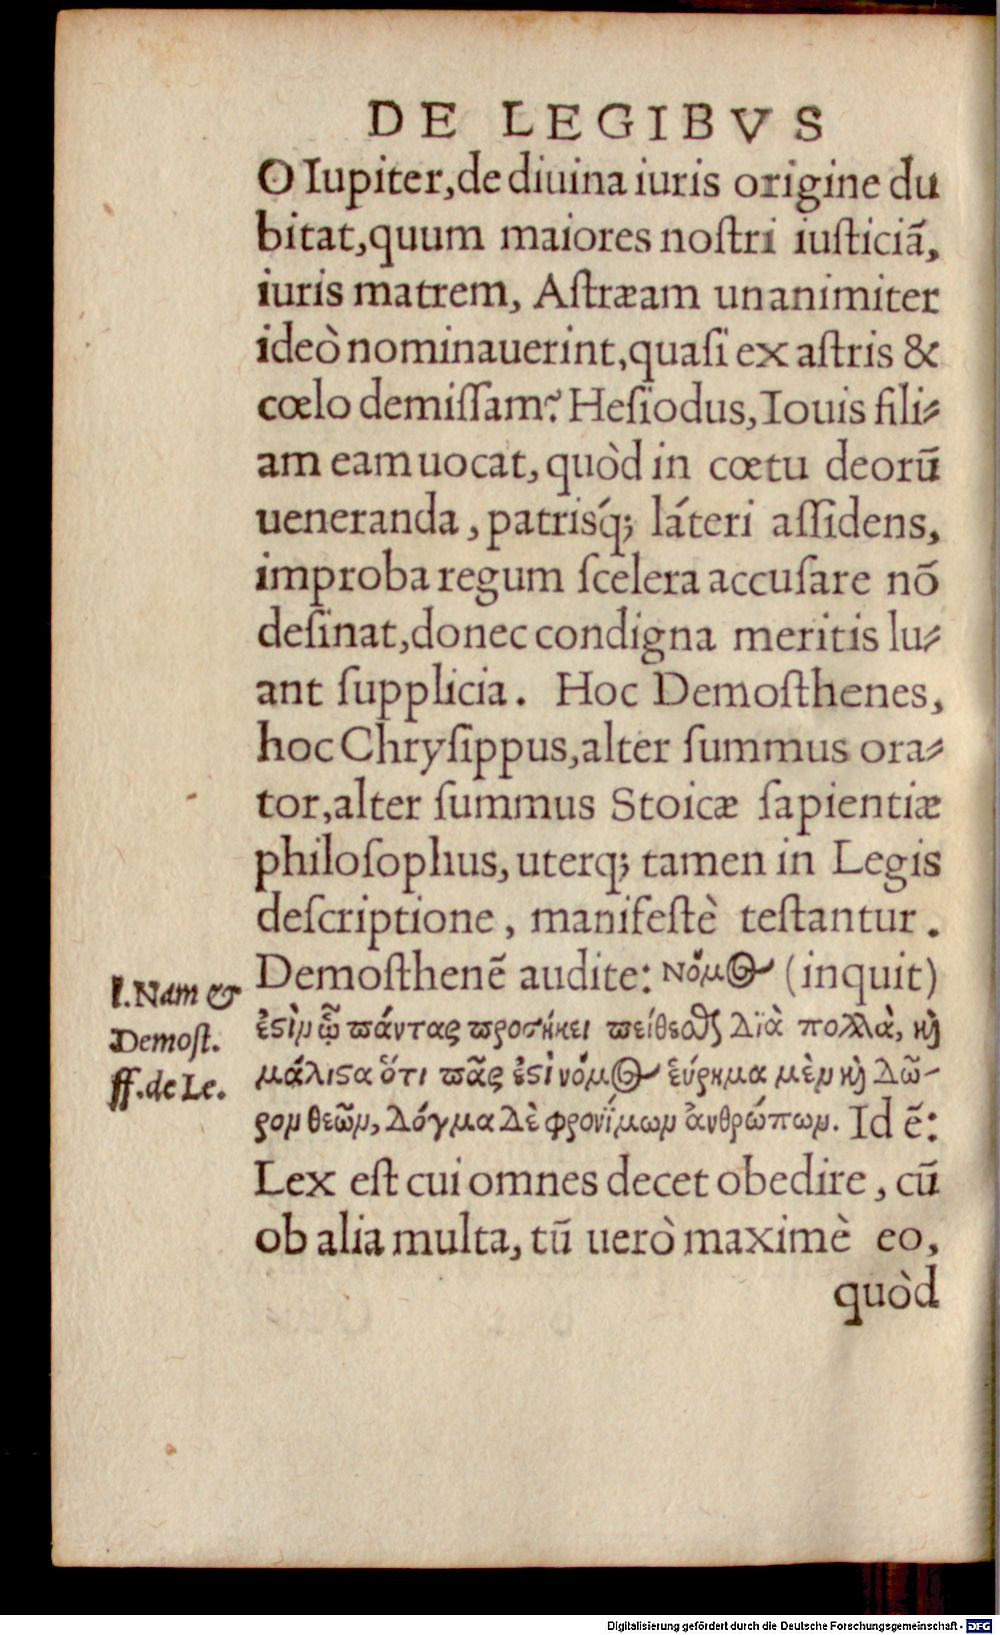 DE LEGIBVS
O Iupiter, de diuina iuris origine du
bitat, quum maiores noſtri iuſticiā,
iuris matrem, Aſtræam unanimiter
ideò nominauerint, quaſi ex aſtris &
cœlo demiſſam? Heſiodus, Iouis fili⸗
am eam uocat, quòd in cœtu deorū
ueneranda, patrisq́; láteri aſſidens,
improba regum ſcelera accuſare nō
deſinat, donec condigna meritis lu⸗
ant ſupplicia. Hoc Demoſthenes,
hoc Chryſippus, alter ſummus ora⸗
tor, alter ſummus Stoicæ ſapientiæ
philoſophus, uterq; tamen in Legis
deſcriptione, manifeſtè teſtantur.
Demoſthenē audite: Νόμος (inquit)
l. Nam &
ἐϛὶμ ᾧ πάντας προσήκει πείθεσθαι Διὰ πολλὰ, καὶ
Demoſt.
μάλιϛα ὅτι πᾶς ἐϛὶ νόμος εὕρημα μὲν καὶ Δῶ-
ff. de Le.
ρον θεῶν, Δόγμα Δὲ φρονίμων ἀνθρώπων. Id ē:
Lex eſt cui omnes decet obedire, cū
ob alia multa, tū uerò maximè eo,
quòd
Digitalisierung gefördert durch die Deutsche Forschungsgemeinschaft - DFG